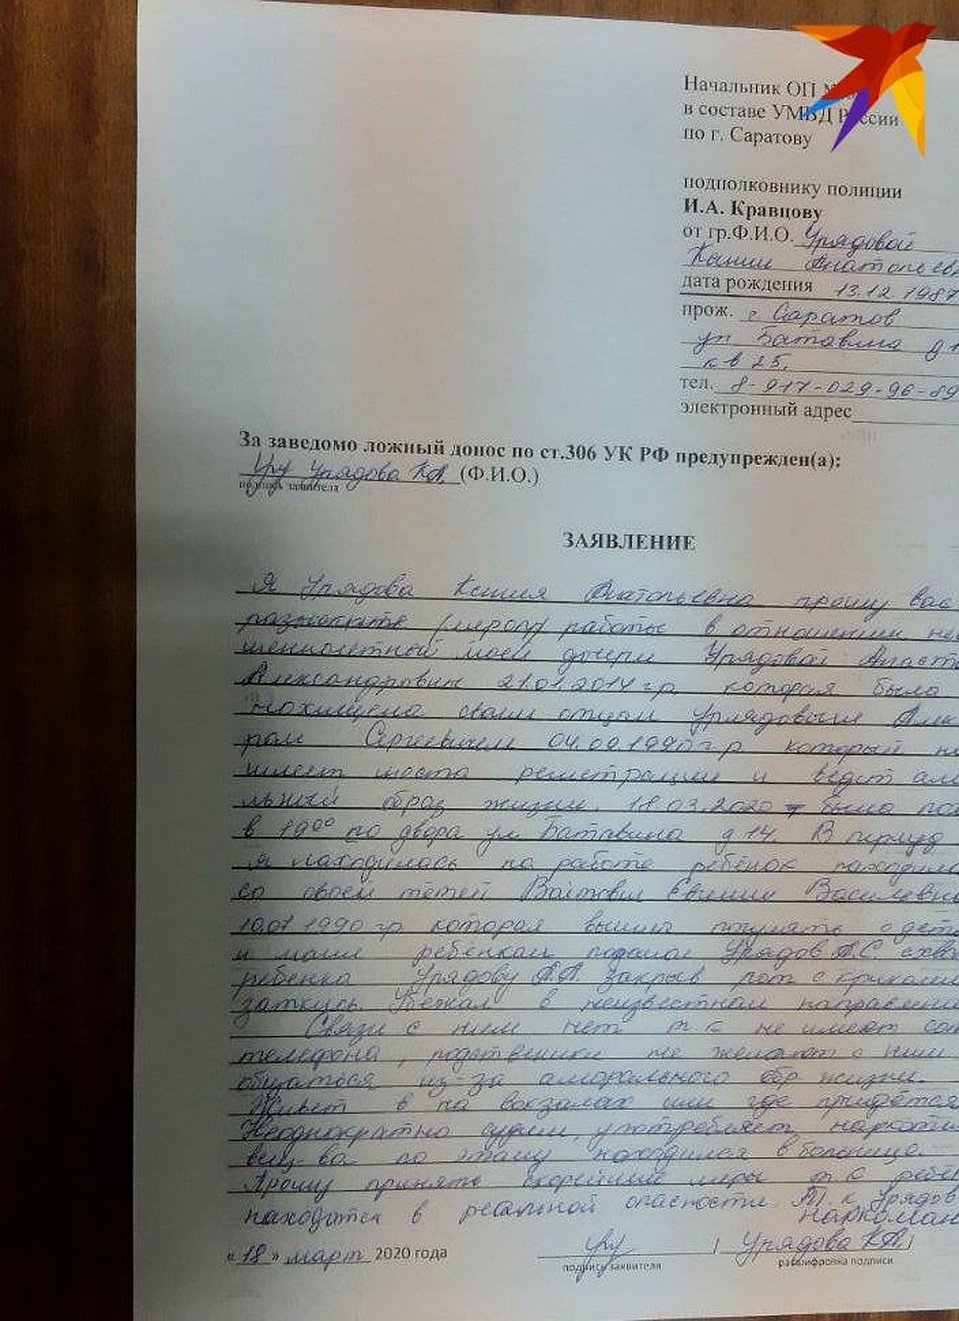 Начальник ОП
в составе УМВД России
по г. Саратову
подполковнику полиции
И.А. Кравцову
от гр.Ф.И.О. Урядовой
Ксении Анатольевн
дата рождения 13.12.1987
прож. г Саратов
ул Батавина д 1
кв 25.
тел. 8-917-029-96-89
электронный адрес
За заведомо ложный донос по ст.306 УК РФ предупрежден(а):
Урядова К.А. (Ф.И.О.)
подпись заявителя
ЗАЯВЛЕНИЕ
Я Урядова Ксения Анатольевна прошу вас
работы в отношении
моей дочери Урядовой Анаст
Александровны 21.01.2014 гр которая была
похищена своим отцом Урядовым Алек
ром Сергеевичем 1990 г р который не
имеет места регистрации и ведит амо
льный образ жизни. 18.03.2020 была пох
в 19⁰⁰ со двора ул Батавина д 14. В период
я находилась на работе ребёнок находил
со своей тетей Евгении Васильевн
10.01 1990 гр которая вышла погулять с дет
и моим ребёнком Урядов А.С. схва
ребёнка Урядову А.А. закрыв рот с криками
заткнись. Убежал в неизвестном направлени
Связи с ним нет т.к не имеет сот
телефона, родственики не желают с ним
общаться из-за аморального обр жизни.
Живёт в на вокзалах или где придётся
Неоднократно судим, употребляет наркоти
вещ-ва по этому находился в больнице.
Прошу принять скорейшие меры т.к ребён
находится в реальной опасности. Т.к Урядов
наркоман
« 18 » март 2020 года Урядова К.А.
подпись заявителя расшифровка подписи